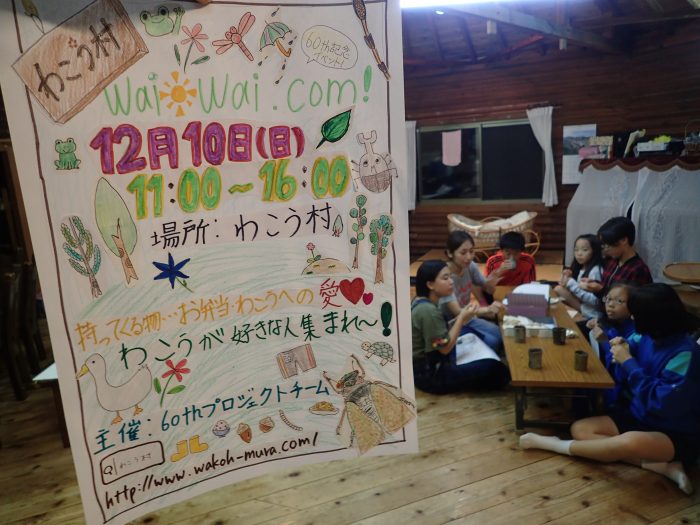 わこう村
60th記念
イベント!
wai wai.com!
12月10日(日)
11:00〜16:00
場所:わこう村
持ってくる物…お弁当・わこうへの愛
わこうが好きな人集まれ〜!
主催:60thプロジェクトチーム
わこう村
http://www.wakoh-mura.com/